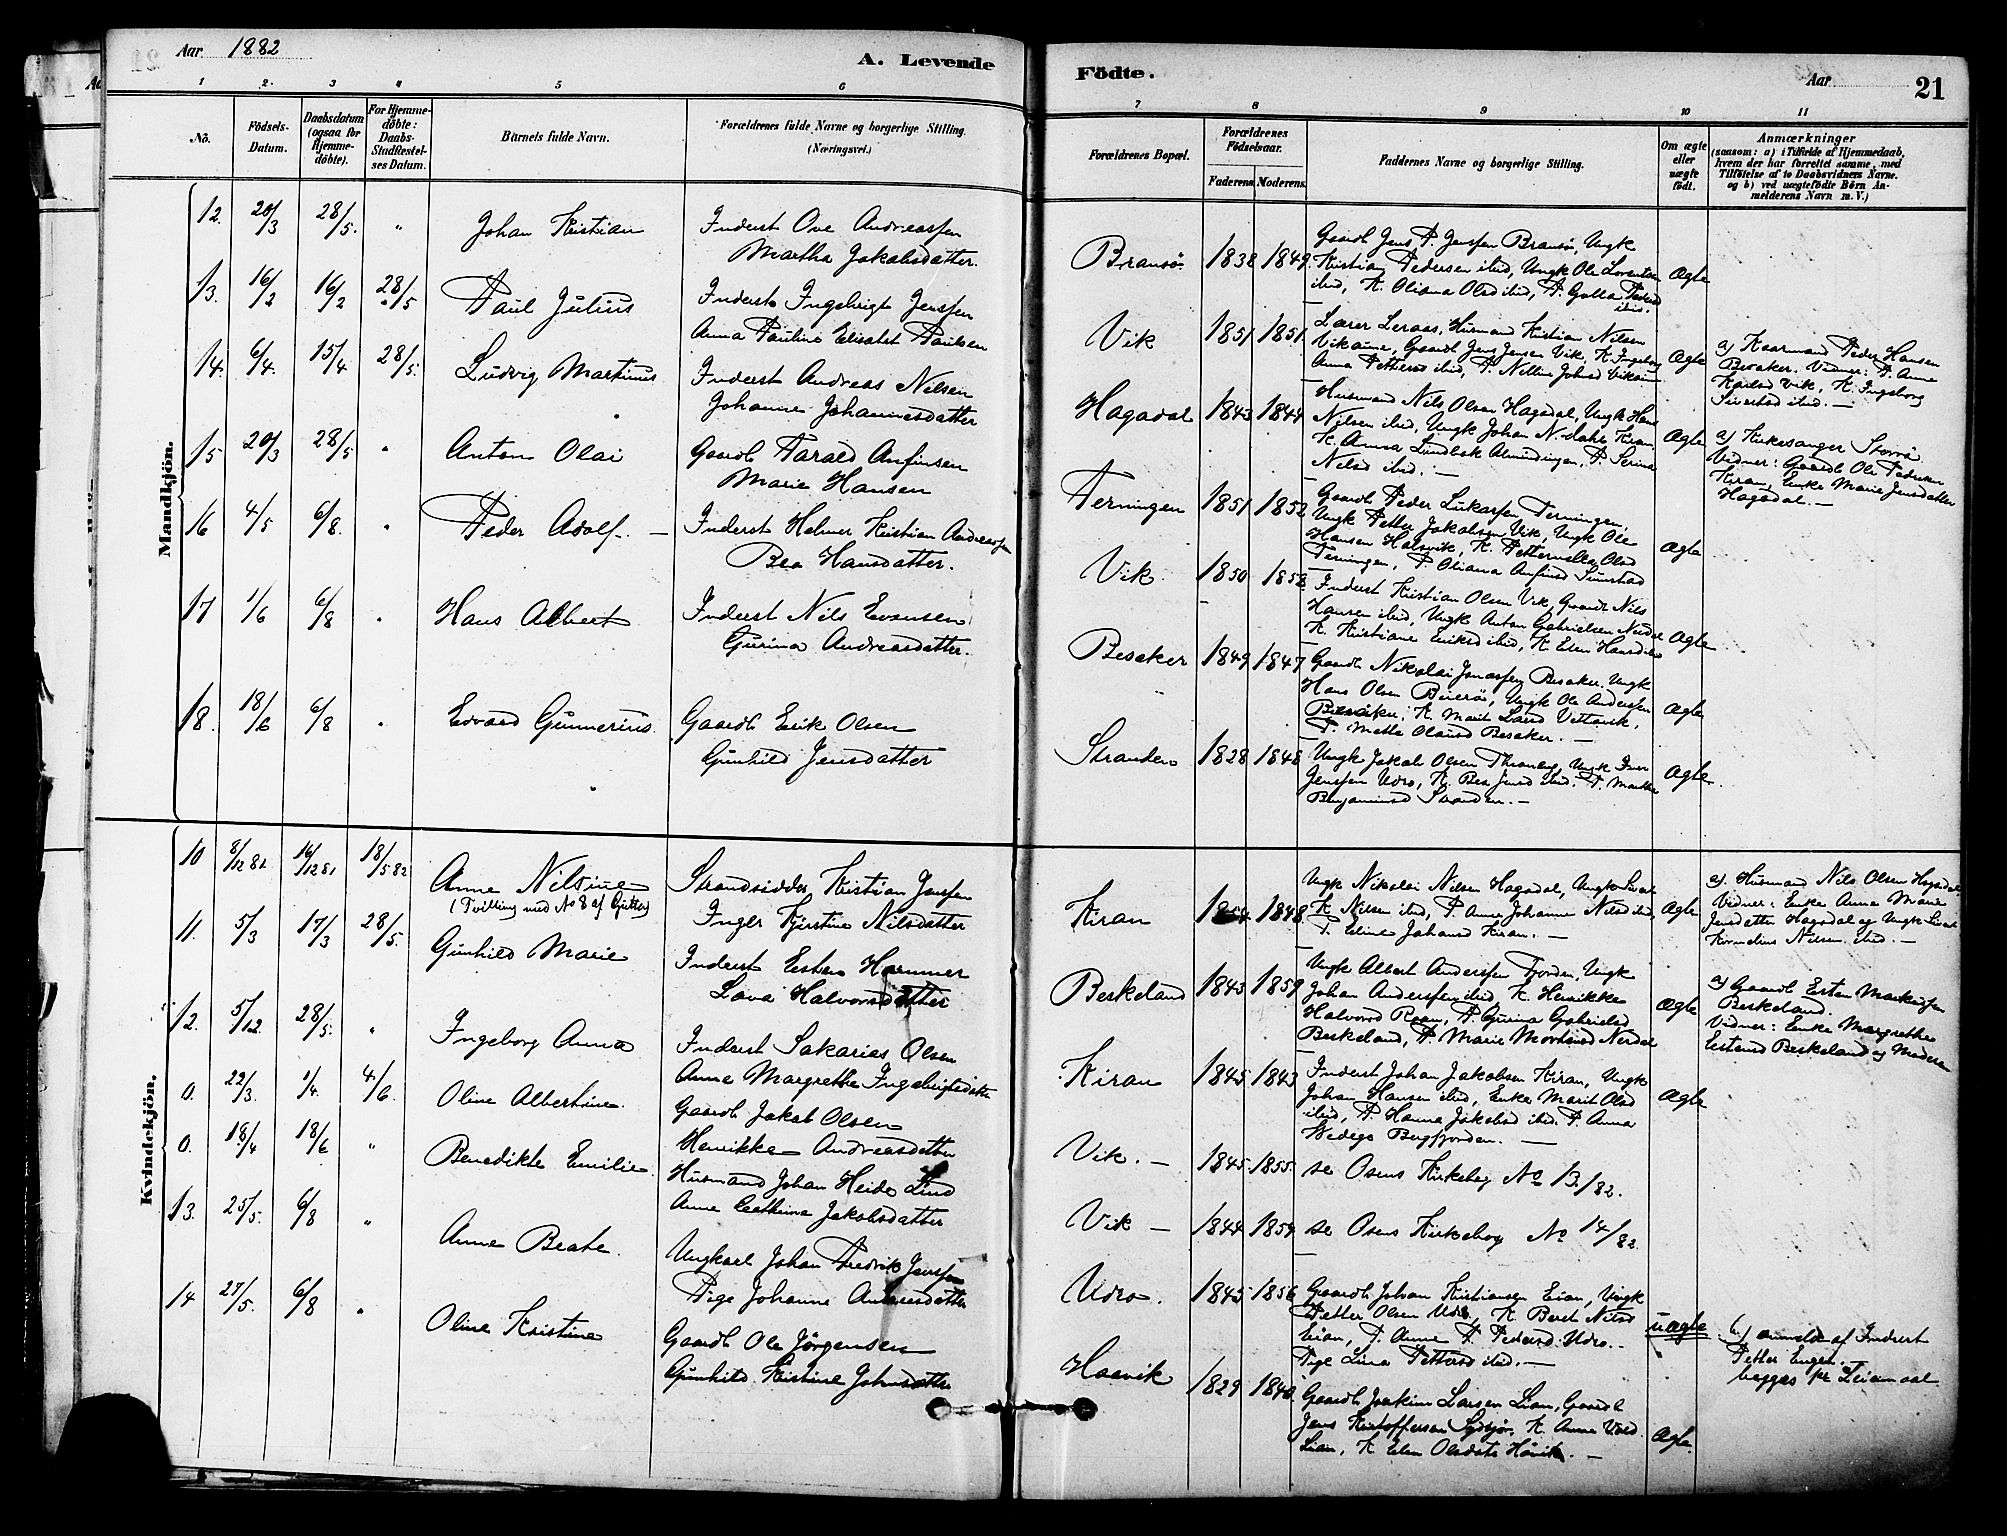 Aar 1882
A. Levende
Födte.
Aar
21
1 2 3 4 5 6
7 8 9 10 11
No. Födsels-Datum. Daabsdatum (ogsaa for Hjemmedöbte). For Hjemmedöbte: Daabs-Stadfæstelses Datum. Barnets fulde Navn. Forældrenes fulde Navne og borgerlige Stilling. (Næringsvei.)
Forældrenes Bopæl. Forældrenes Födselsaar. Faderens. Moderens. Faddernes Navne og borgerlige Stilling. Om ægte eller uægte födt. Anmærkninger (saasom: a) i Tilfælde af Hjemmedaab, hvem der har forrettet samme, med Tilföielse af to Daabsvidners Navne. og b) ved uægtefödte Börn Anmelderens Navn m. V.)
Mandkjön.
12. 20/3 28/5. " Johan Kristian Inderst Ove Andreassen
Martha Jakobsdatter.
13. 16/2 16/2 28/5 Paul Julius Inderst Ingebrigt Jenssen
Anna Pauline Elisabet Paulsen
14. 6/4. 15/4 28/5. Ludvig Martinus Inderst Andreas Nilsen
Johanne Johannesdatter
15. 20/3 28/5 " Anton Olai Gaardb Tarald Anfinsen
Marie Hansen
16 4/5 6/8. " Peder Adolf. — Inderst Helmer Kristian Andreassen
Bea Hansdatter.
17 1/6 6/8 " Hans Albert Inderst Nils Evensen
Gurina Andreasdatter.
18. 18/6 6/8 " Edvard Gunnerius. Gaardb Erik Olsen
Gunhild Jensdatter
Kvindekjön.
10 8/12 81. 16/12 81 18/5 82 Anne Nilsine Strandsidder Kristian Jenssen
(Tvilling med No 8 af Gutter) Inger Kjirstine Nilsdatter
11. 5/3 17/3 28/5. Gunhild Marie Inderst Esten Hammer
Lava Halvorsdatter
12. 5/12 28/5. " Ingeborg Anna Inderst Sakarias Olsen
Anne Margrethe Ingebrigtsdatter
0. 22/3. 1/4. 4/6. Oline Albertine. Gaardb Jakob Olsen
Henrikke Andreasdatter
0. 18/4 18/6 " Benedikte Emilie. Husmand Johan Heide Lund
Anne Cathrina Jakobsdatter
13. 25/5. 6/8 " Anne Beate. Ungkarl Johan Fredrik Jenssen
Pige Johanne
14 27/5. 6/8 " Oline Kristine Gaardb Ole Jørgensen
Gunhild Kristine Johnsdatter
Bransø. 1838 1849. Gaardb Jens P. Jenssen Bransø, Ungk
Kristian Pedersen ibid, Ungk Ole Lorentsen
ibid, K. Oliana Olsd ibid, P. Golla Pedersd
ibid.
Ægte
Vik 1851 1851 Lærer Leraas, Husmand Kristian Nilsen
Vikaune, Gaardb Jens Jensen Vik, K. Ingeborg
Anna Pettersd ibid, P. Nelline Johnsd Vikaun
Ægte a) Kaarmand Peder Hansen
Besaker. Vidner: P. Anne
Karlsd Vik, K. Ingeborg
Sivertsd ibid. —
Hagadal 1843 1844 Husmand Nils Olsen Hagadal, Ungk Hans
Nilsen ibid, Ungk Johan N. Kiran
K. Anna Lindbak Almudingen, P. Serina
Nilsd ibid. —
Ægte a) Kirkesanger Storrø
Vidner: Gaardb Ole Pedersen
Kiran, Enke Marie Jensdatter
Hagadal. —
Terningen 1851 1852 Gaardb Peder Lukassen Terningen,
Ungk Petter Jakobsen Vik, Ungk Ole
Hansen Halsvik, K. Petternelle Olsd
Terningen, P. Oliana Anfinsd
Ægte
Vik. 1850 1858 Inderst Kristian Olsen Vik, Gaardb Nils
Hansen ibid, Ungk Anton Gabrielsen Nerdal
K. Kristiane Eriksd ibid, K. Elen Hansd ibid
Ægte
Besaker 1849 1847 Gaardb Nikolai Jonassen Besaker. Ungk
Hans Olsen Beverø, Ungk Ole Anderssen
Besaker, K. Marit Larsd Vettavik,
P. Mette Olausd Besaker. —
Ægte
Stranden 1828 1848 Ungk Jakob Olsen, Ungk Iver
Jenssen Udro, K. Bea Jensd ibid. P. Marthe
Benjaminsd Stranden. —
Ægte.
Kiran 1848 Ungk Nikolai Nilsen Hagadal, Ungk Sivert
K. Nilsen ibid, P. Anne Johanne Nilsd ibid,
P. Eline Johansd Kiran. —
Ægte a) Husmand Nils Olsen Hagadal
Vidner: Enke Anna Marie
Jensdatter Hagadal og Ungk Sivert
Kornelius Nilsen ibid. —
Beskeland 1843 1859 Ungk Albert Anderssen Fjorden, Ungk
Johan Anderssen ibid, K. Henrikke
Halvorsd Roan, P. Gurina Gabrielsd
Beskeland, P. Marie Mortensd Nerdal
Ægte a) Gaardb Esten Markussen
Beskeland.
Vidner: Enke Margrethe
Estensd Beskeland og Moderen
Kiran 1845 1843 Inderst Johan Jakobsen Kiran, Ungk
Johan Hansen ibid, Enke Marit Olsd
ibid, P. Hanna Jakobsd ibid. P. Anna
Wedege Bergfjorden. —
Ægte
Vik. — 1845. 1855. se Osens Kirkebog No 13./82.
Vik — 1844 1854 se Osens Kirkebog No 14/82
Udro. 1845 1856 Gaardb Johan Kristiansen Eian, Ungk
Petter Olsen Udro, K. Beret Nilsd
Eian, P. Anne P. Pedersd Udro. —
Pige Lina Pettersd ibid. —
uægte b.) anmeldt af Inderst
Petter Engen.
begges 1ste Leiermaal.
Hasvik 1829 1840. Gaardb Joakim Larsen Lian, Gaardb
Jens Kristoffersen Sydsjør, K. Anne
Lian, K. Elen Olsdatr Håvik. —
Ægte.